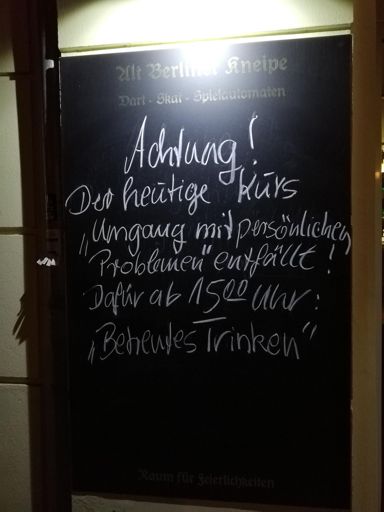 Alt Berliner Kneipe
Dart - Skat - Spielautomaten
Achtung!
Der heutige Kurs
„Umgang mit persönlichen
Problemen" entfällt!
Dafür ab 15⁰⁰ Uhr:
„Betreutes Trinken"
Raum für Feierlichkeiten